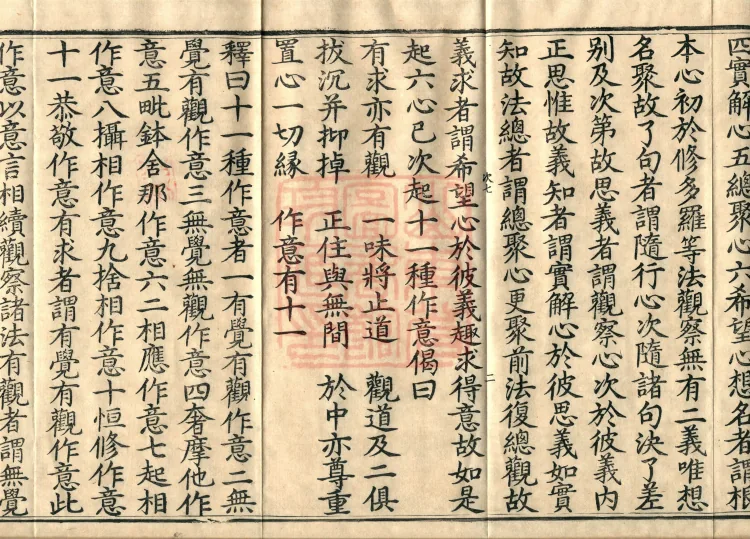 四實解心五總聚心六希望心想名者謂根
本心初於修多羅等法觀察無有二義唯想
名聚故了句者謂隨行心次隨諸句決了差
别及次第故思義者謂觀察心次於彼義内
正思惟故義知者謂實解心於彼思義如實
知故法總者謂總聚心更聚前法復總觀故
義求者謂希望心於彼義趣求得意故如是
次七
二
起六心已次起十一種作意偈曰
有求亦有觀 一味將止道 觀道及二俱
拔沉并抑掉 正住與無間 於中亦尊重
置心一切緣 作意有十一
釋曰十一種作意者一有覺有觀作意二無
覺有觀作意三無覺無觀作意四奢摩他作
意五毗鉢舍那作意六二相應作意七起相
作意八攝相作意九捨相作意十恒修作意
十一恭敬作意有求者謂有覺有觀作意此
作意以意言相續觀察諸法有觀者謂無覺